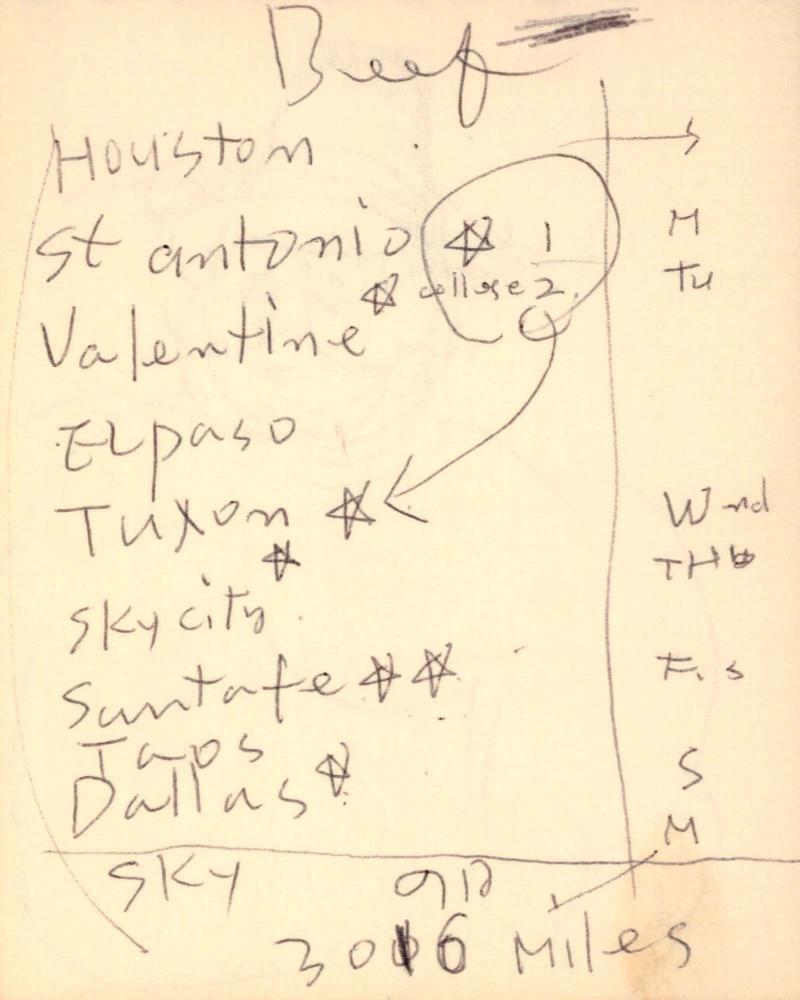 Beef
Houston S
St antonio ☆ 1 M
☆ college 2. Tu
Valentine
ELpaso
Tuxon ☆ Wnd
☆ TH
Skycity
Santafe ☆☆ F. S
Taos
Dallas ☆ S
M
SKY
3016 Miles